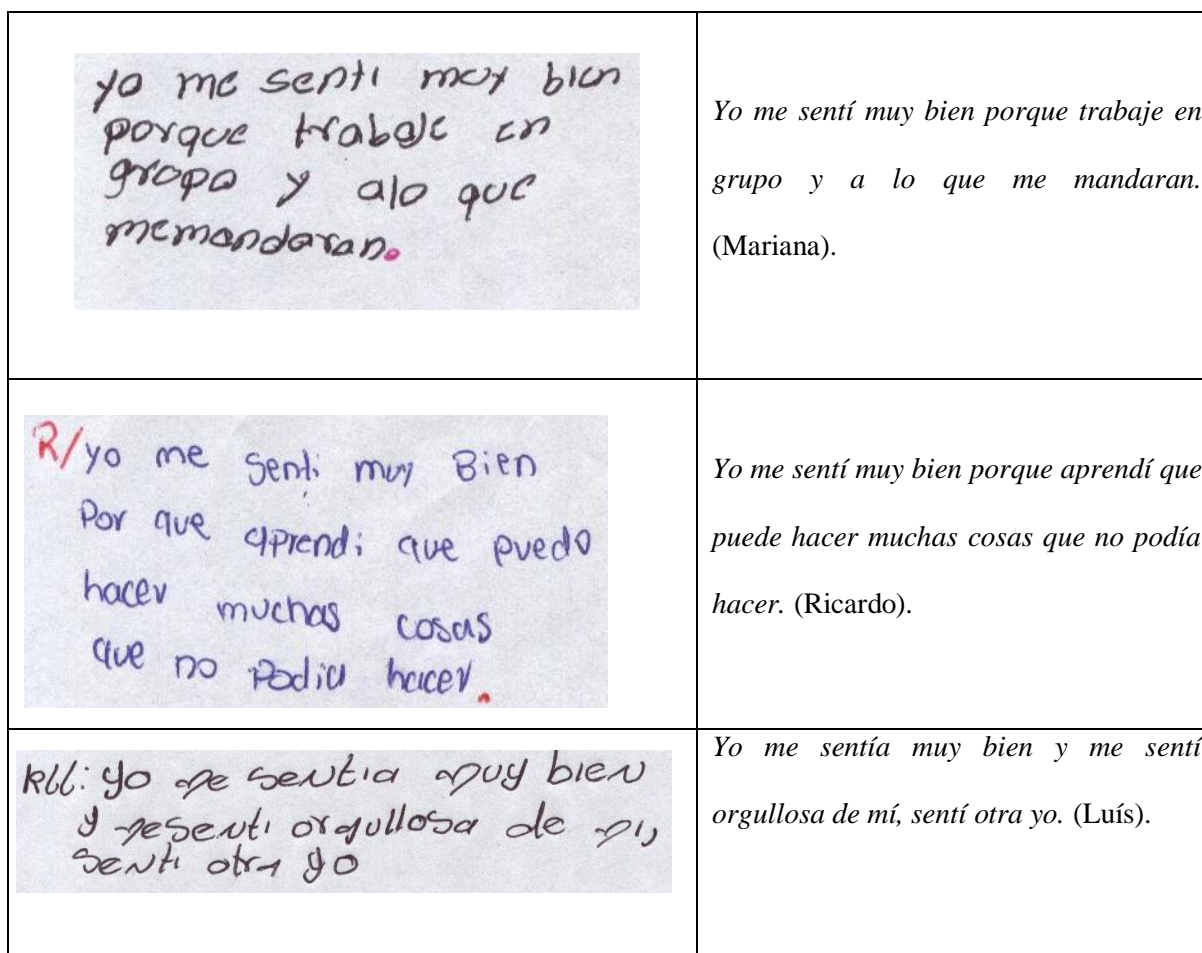 yo me senti muy bien
porque trabaje en
grupo y alo que
memandaran.
Yo me sentí muy bien porque trabaje en
grupo y a lo que me mandaran.
(Mariana).
R/yo me senti muy Bien
Por que aprendi que puedo
hacer muchas cosas
que no Podia hacer.
Yo me sentí muy bien porque aprendí que
puede hacer muchas cosas que no podía
hacer. (Ricardo).
Rll: yo me sentia muy bien
y mesenti orgullosa de mi,
senti otra yo
Yo me sentía muy bien y me sentí
orgullosa de mí, sentí otra yo. (Luís).